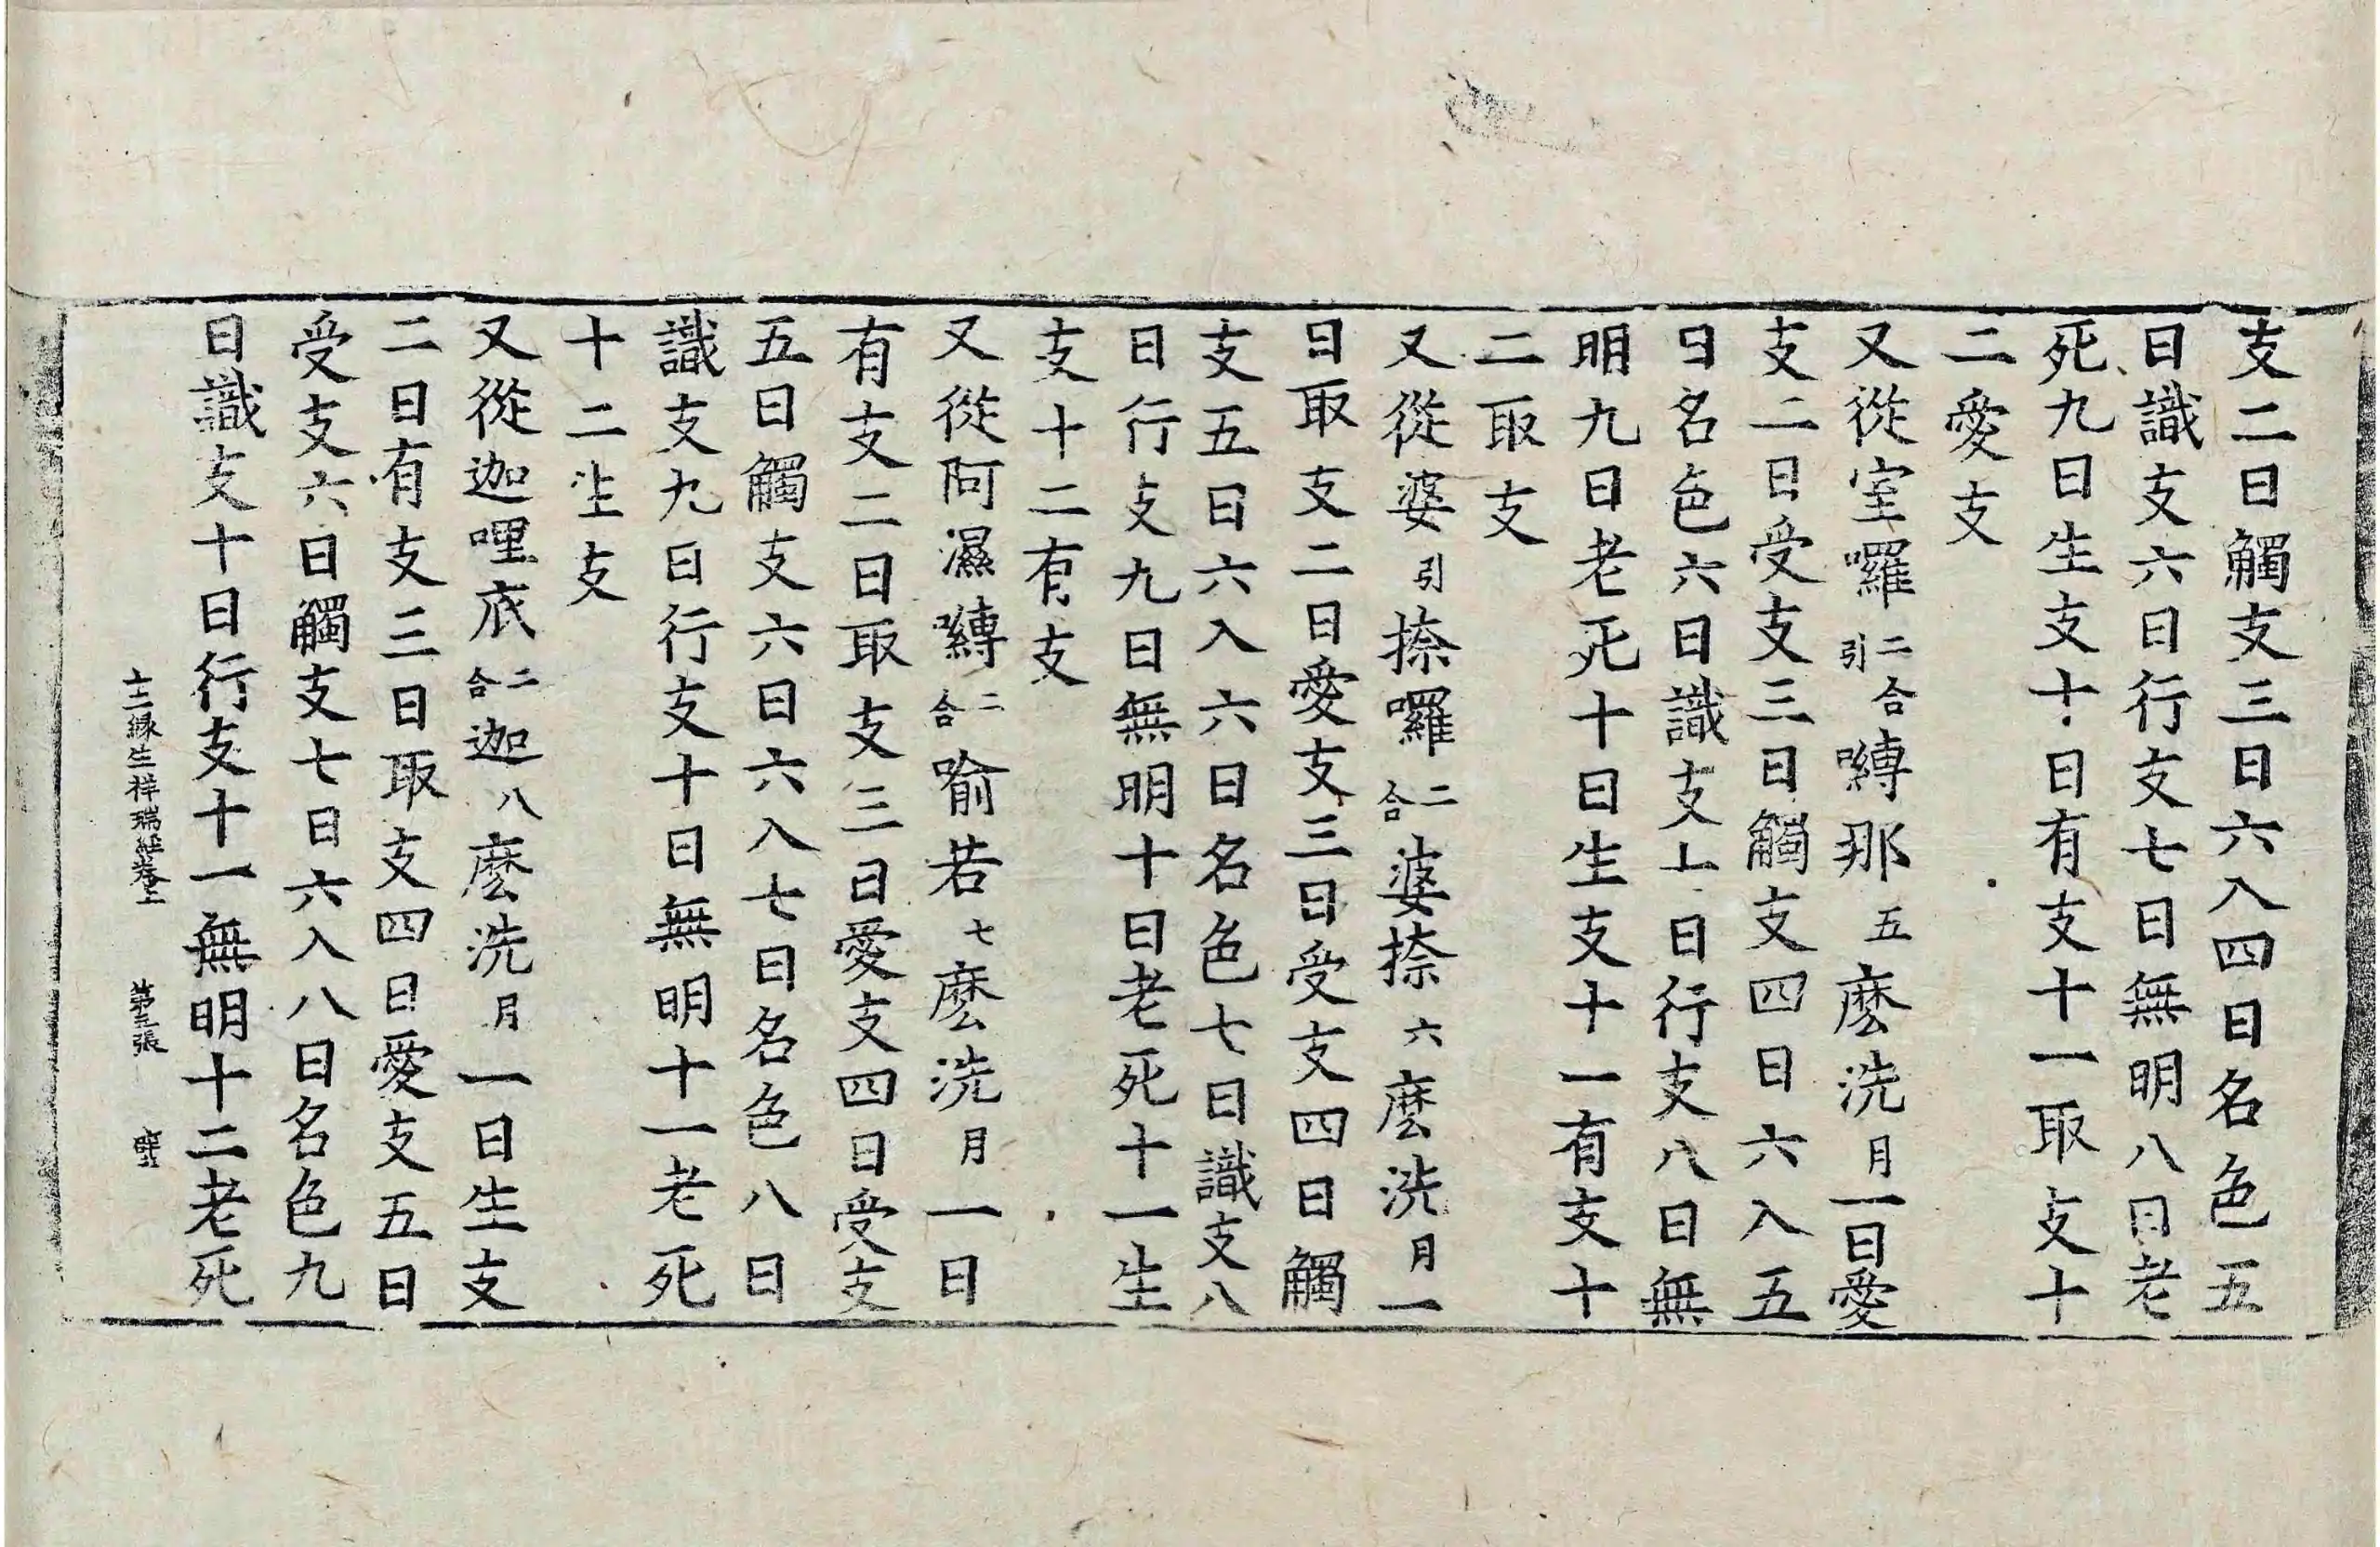 支二日觸支三日六入四日名色五
日識支六日行支七日無明八日老
死九日生支十日有支十一取支十
二愛支
又從室囉二合引嚩那五麽洗月一日愛
支二日受支三日觸支四日六入五
日名色六日識支七日行支八日無
明九日老死十日生支十一有支十
二取支
又從婆引捺囉二合婆捺六麽洗月一
日取支二日愛支三日受支四日觸
支五日六入六日名色七日識支八
日行支九日無明十日老死十一生
支十二有支
又從阿濕嚩二合喻若七麽洗月一日
有支二日取支三日愛支四日受支
五日觸支六日六入七日名色八日
識支九日行支十日無明十一老死
十二生支
又從迦哩底二合迦八麽洗月一日生支
二日有支三日取支四日愛支五日
受支六日觸支七日六入八日名色九
日識支十日行支十一無明十二老死
十二緣生祥瑞經卷上 第三張